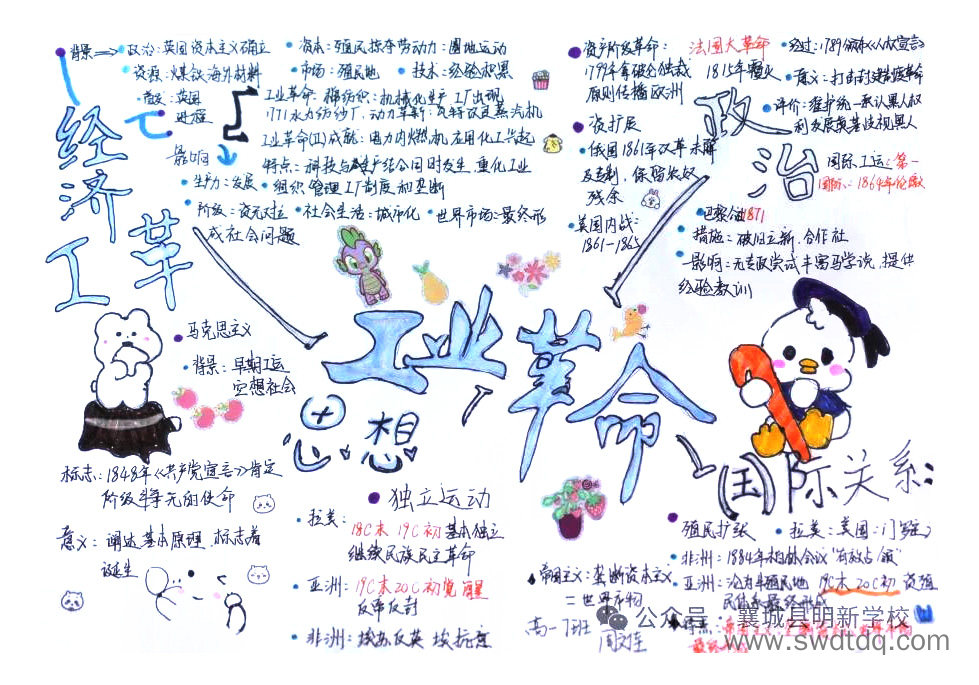 背景
政治：英国资本主义确立
资源：煤铁海外材料
资本：殖民掠夺劳动力：圈地运动
市场：殖民地
技术：经验积累
首发：英国
进程
工业革命：棉纺织：机械化生产工厂出现
1771水力纺纱厂.动力革新：瓦特改良蒸汽机
工业革命(II)成就：电力内燃机,应用化工兴起
特点：科技与
影响
生产力：发展
组织管理工厂制度和垄断
阶级：资无对立
社会生活：城市化
世界市场：最终形
成社会问题
经济
工革
马克思主义
背景：早期工运
空想社会
标志：1848年《共产党宣言》肯定
意义：阐述基本原理，标志着
诞生
工业革命
思想
独立运动
拉美：
18C末 19C初 基本独立
继续民族民主革命
亚洲：19C末20C初觉醒
反帝反封
非洲：埃苏反英 埃抗意
政治
资产阶级革命：
法国大革命
1799年拿破仑独裁
1815年覆灭
原则传播欧洲
经过：1789
《人权宣言》
意义：打击封建
评价：维护统一承认黑人权
利
歧视黑人
资扩展
俄国1861年改革未解
残余
美国内战：
1861—1865
国际工运：第一
国际：1864年伦敦
巴黎公社1871
措施：破旧立新.合作社
影响：无专政尝试丰富马学说,提供
经验教训
国际关系：
殖民扩张
拉美：美国：门罗
非洲：1884年柏林会议“有效占领”
亚洲：沦为半殖民地 19C末20C初 资强
民体系最终形成
帝国主义：垄断资本主义
=世界市场
高一7班
公众号·襄城县明新学校
www.swdtdq.com